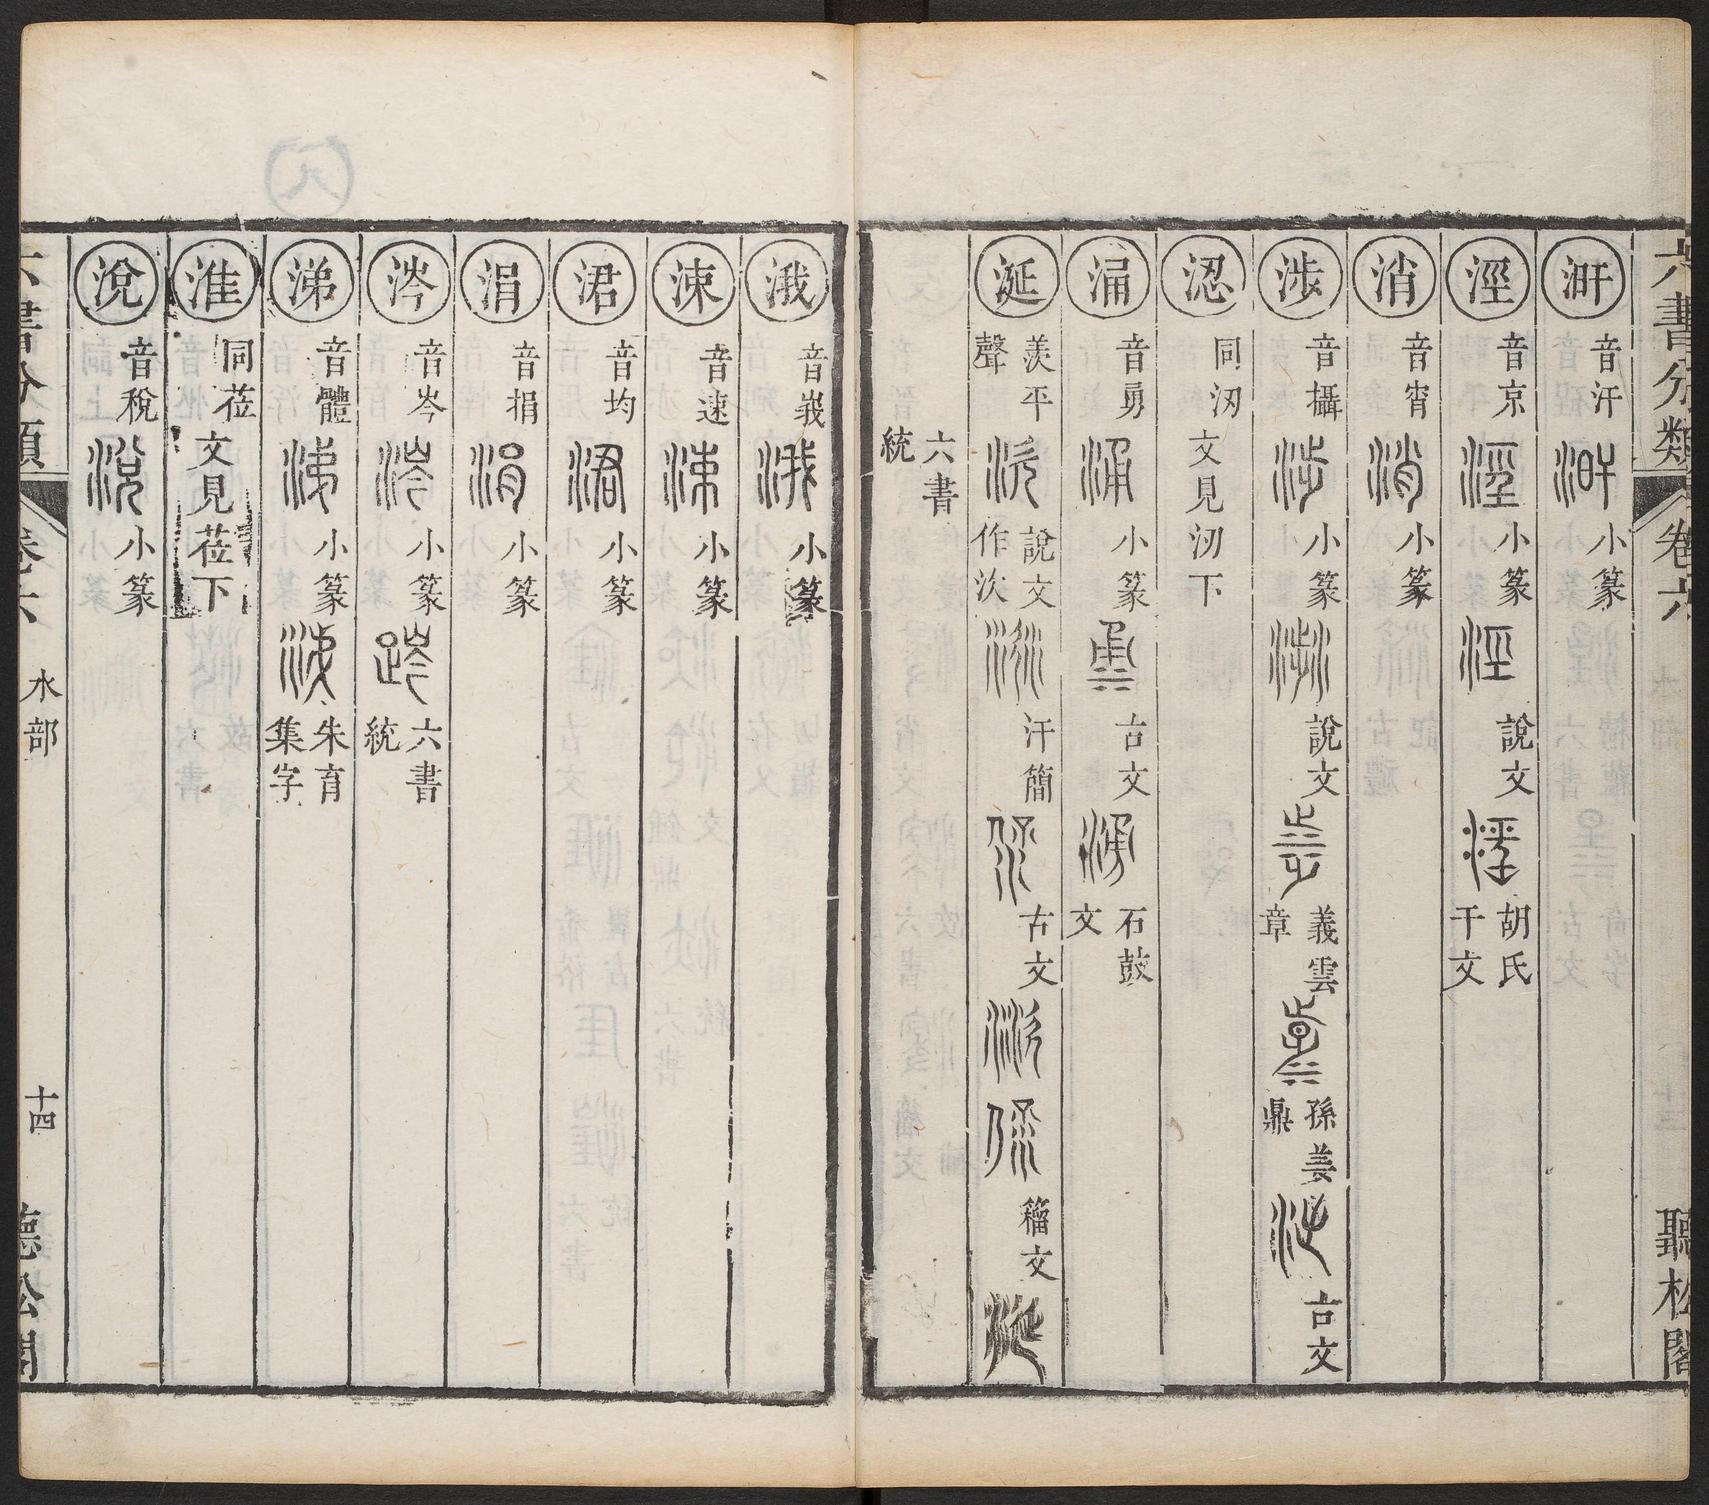 六書分類 卷六 聽松閣
汧 音汗 小篆
涇 音京 小篆 說文 胡氏千文
消 音宵 小篆
涉 音攝 小篆 說文 義雲章 孫姜鼎 古文
涊 同汈 文見汈下
涌 音勇 小篆 古文 石鼓文
涎 羨平聲 說文作㳄 汗簡 古文 籀文
六書統
涐 音峩 小篆
涑 音速 小篆
涒 音均 小篆
涓 音捐 小篆
涔 音岑 小篆 六書統
涕 音體 小篆 朱育集字
淮 同莅 文見莅下
涗 音稅 小篆
六書分類 卷六 水部 十四 聽松閣